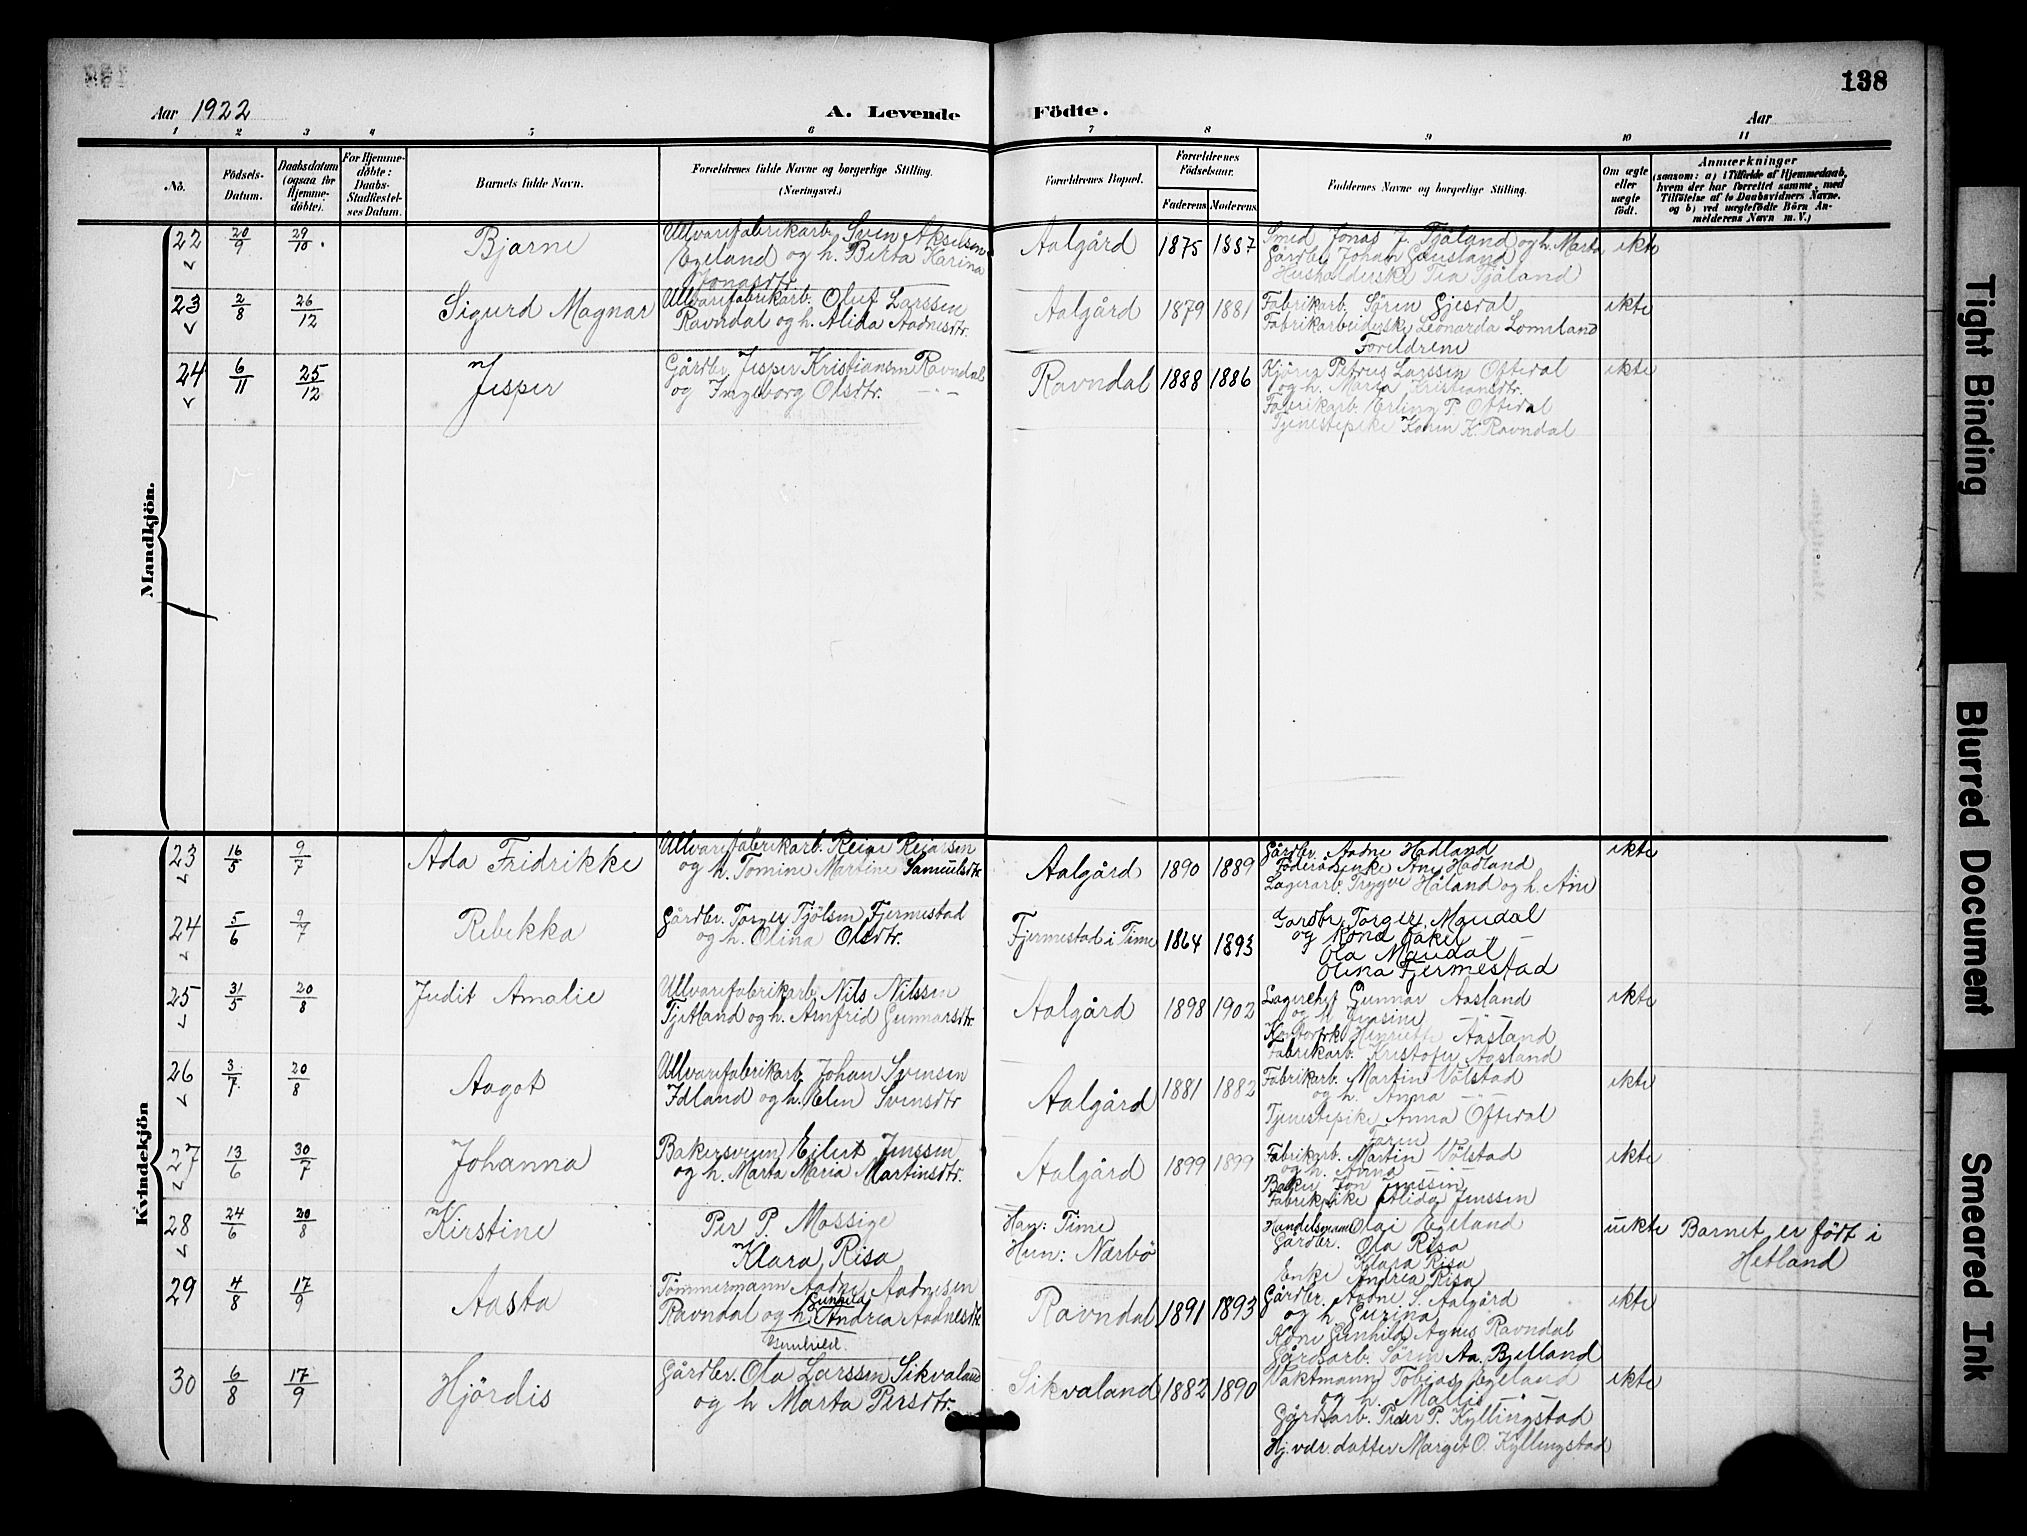 138
Aar 1922
A. Levende Födte.
Aar
1 2 3 4 5 6 7 8 9 10 11
No.
Födsels-Datum.
Daabsdatum (ogsaa for Hjemme-döbte).
For Hjemme-döbte: Daabs-Stadfæstel-ses Datum.
Barnets fulde Navn.
Forældrenes fulde Navne og borgerlige Stilling. (Næringsvei.)
Forældrenes Bopæl.
Forældrenes Födselsaar.
Faderens Moderens
Faddernes Navne og borgerlige Stilling.
Om ægte eller uægte födt.
Anmærkninger
(saasom: a) i Tilfælde af Hjemmedaab,
hvem der har forrettet samme, med
Tilföielse af to Daabsvidners Navne.
og b) ved uægtefödte Börn An-
melderens Navn m. V.)
Mandkjön.
22 20/9 29/10 Bjarne
Ullvarefabrikarb. Sven Akselsen
Egeland og h. Berta Karina
Jonasdtr.
Aalgård 1875 1887
Smed Jonas J. Tjåland og h. Marta
Gårdbr. Johan Gausland
Husholderske Tea Tjåland
ekte
23 2/8 26/12 Sigurd Magnar
Ullvarefabrikarb. Oluf Larssen
Ravndal og h. Alida Aadnesdtr.
Aalgård 1879 1881
Fabrikarb. Søren Gjesdal
Fabrikarbeiderske Leonarda Lomeland
Foreldrene
ekte
24 6/11 25/12 Jesper
Gårdbr. Jesper Kristiansen Ravndal
og Ingeborg Olsdtr. — " —
Ravndal 1888 1886
Kjører Petrus Larssen Oftedal
og h. Marta Kristiansdtr.
Fabrikarb. Erling P. Oftedal
Tjenestepike Karen K. Ravndal
ekte
Kvindekjön
23 16/5 9/7 Ada Fredrikke
Ullvarefabrikarb. Reier Reiersen
og h. Tomine Martine Samuelsdtr
Aalgård 1890 1889
Gårdbr. Aadne Hadland
Føderådsenke Ane Hadland
Lagerarb. Trygve Håland og h. Ane
ekte
24 5/6 9/7 Rebekka
Gårdbr. Torger Tjølsen Fjermestad
og h. Olina Olsdtr.
Fjermestad i Time 1864 1893
Gardbr. Torger Maudal
og kona Rakel — " —
Ola Maudal
Olina Fjermestad
25 31/5 20/8 Judit Amalie
Ullvarefabrikarb. Nils Nilssen
Tjetland og h. Arnfrid Gunnarsdtr.
Aalgård 1898 1902
Lagerchef Gunnar Aasland
og h. Jensine — " —
Henriette Aasland
Fabrikarb. Kristofer Aasland
ekte
26 3/7 20/8 Aagot
Ullvarefabrikarb. Johan Svensen
Edland og h. Elen Svensdtr
Aalgård 1881 1882
Fabrikarb. Martin Vølstad
og h. Anna — " —
Tjenestepike Anna Oftedal
Faren
ekte
27 13/6 30/7 Johanna
Bakersvenn Eilert Jenssen
og h. Marta Maria Martinsdtr.
Aalgård 1899 1899
Fabrikarb. Martin Vølstad
og h. Anna — " —
Baker Jon Jenssen
Fabrikpike Alida Jenssen
ekte
28 24/6 20/8 Kirstine
Per P. Mossige
Klara Risa
Han: Time
Hun: Nærbø
Handelsmann Olai Egeland
Gårdbr. Ola Risa
Klara Risa
Enke Andrea Risa
uekte
Barnet er født i
Hetland
29 4/8 17/9 Aasta
Tømmermann Aadne Aadnesen
Ravndal og h. Gunhild Andrea Aadnesdtr.
Gunhild.
Ravndal 1891 1893
Gårdbr. Aadne S. Aalgård
og h. Gurina
Kone Gunhild Agnes Ravndal
Gårdsarb. Søren Aa. Bjelland
ekte
30 6/8 17/9 Hjørdis
Gårdbr. Ola Larssen Sikvaland
og h Marta Persdtr.
Sikvaland 1882 1890
Vaktmann Tobias Egeland
og h. Mallis — " —
Gårdsarb. Peder P. Kyllingstad
Hj. vær. datter Marget O. Kyllingstad
ekte
Tight Binding
Blurred Document
Smeared Ink